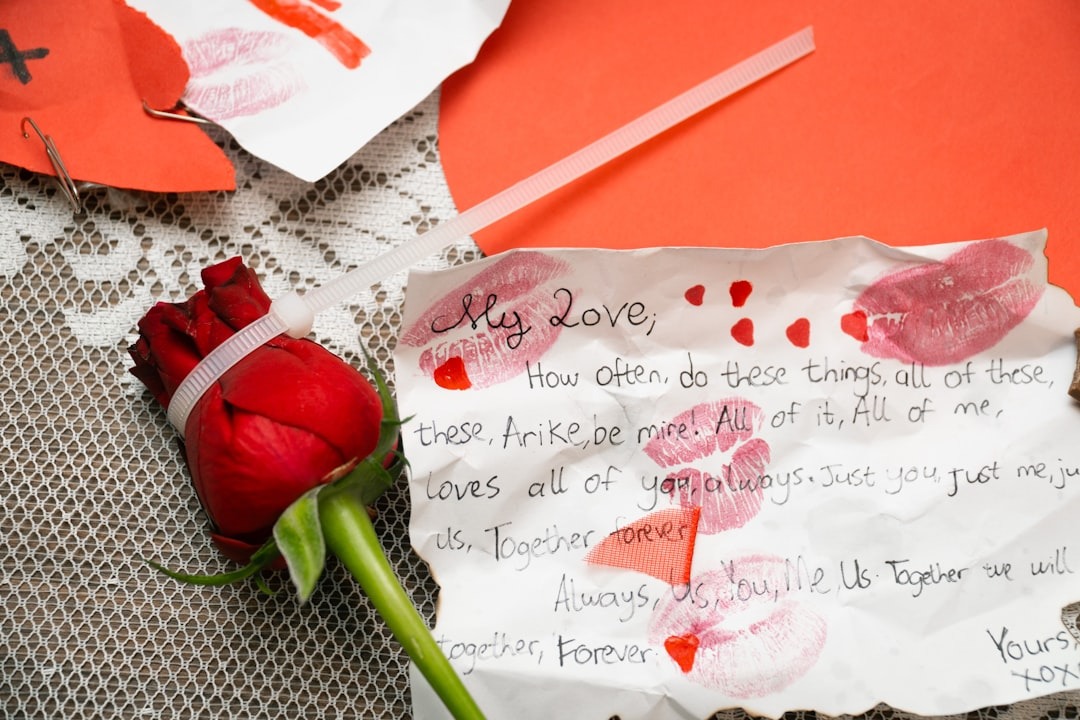 My Love;
How often, do these things, all of these,
these, Arike, be mire! All of it, All of me,
loves all of you, always. Just you, just me, ju
us, Together forever
Always, Us, You, Me, Us. Together we will
together, Forever.
Yours,
xox